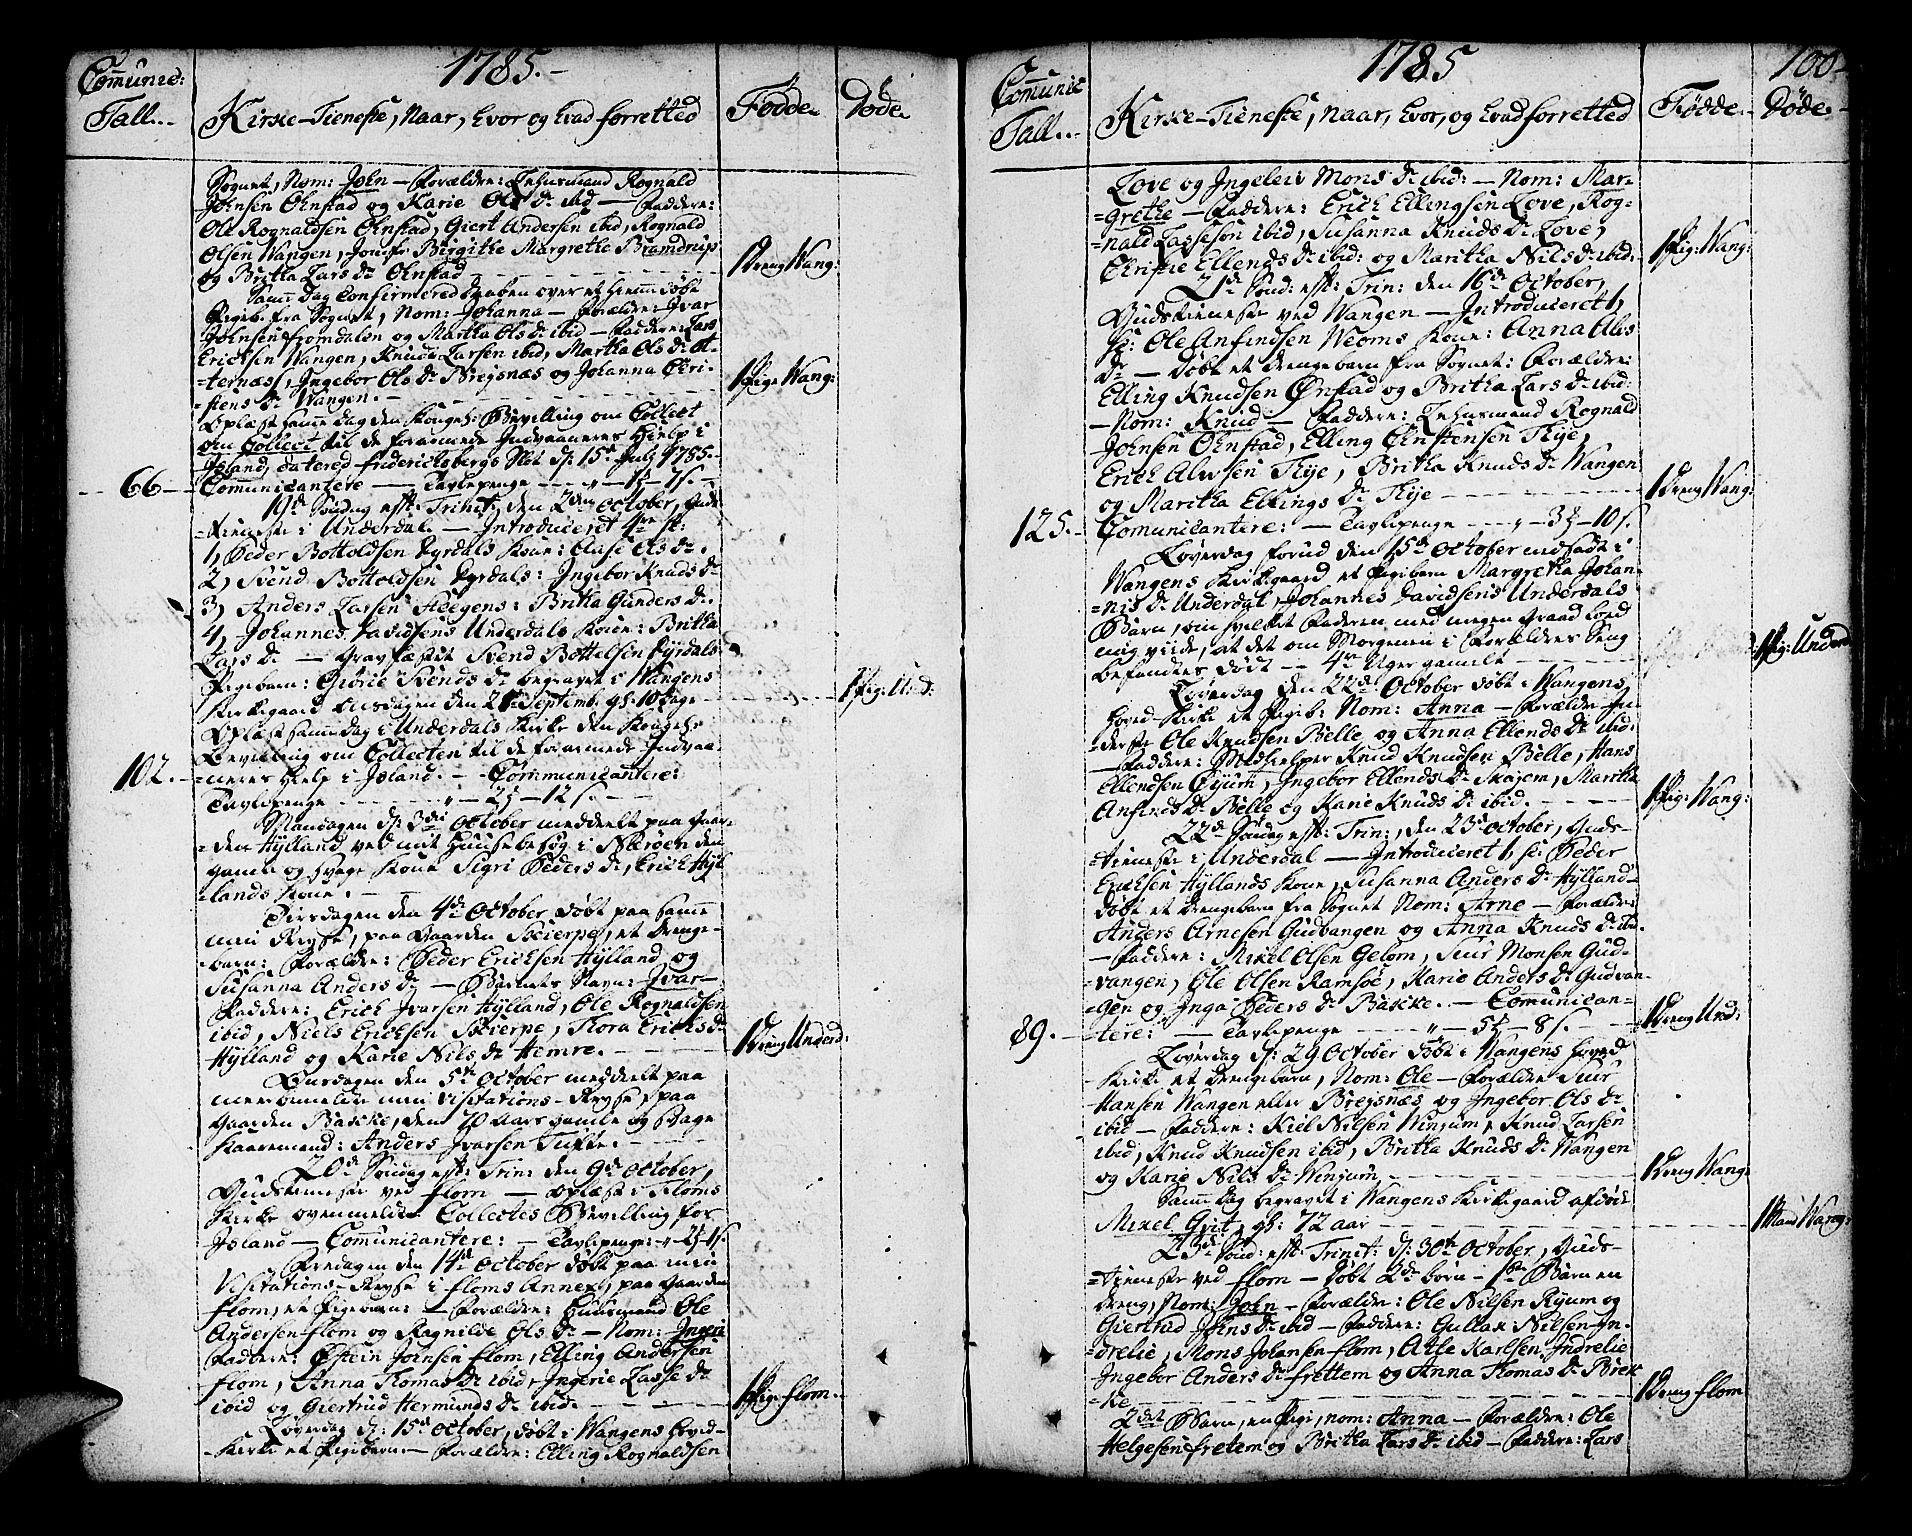 Comunic:
Tall..
1785.-
Kirke-Tieneste, Naar, hvor og hvad forretted
Fødde
Døde
Sognet, Nom: John – Forældre: Lehnsmand Rognald
Johnsen Ohnstad og Karie Ols D. ibid – Faddere:
Ole Rognaldsen Ohnstad, Giert Andersen ibid, Rognald
Olsen Wangen, Jomfr. Birgitha Margretha Bramdrup
og Britha Lars D. Ohnstad
1 Dreng Wang:
Samme Dag Confirmered Daaben over et hiemmedøbt
Pigeb. fra Sognet, Nom: Johanna – Forældre: Ivar
Johnsen Fromdalen og Martha Ols D. ibid – Faddere: Lars
Ericksen Wangen, Knud Larsen ibid, Martha Ols D. Ot-
=ternæs, Ingebor Ols D. Breijsnæs og Johanna Chri-
=stens D. Wangen.
1 Pige Wang:
Oplæst samme dag den Kongel: Bevilling om Collect
om Collect til de forarmede Indvaaneres hielp i
Island, datered Fredericksbergs Slot d: 15de July 1785.
66
Comunicantere — Tavlepenge - - „ – 1 – 7 s. –
19de Søndag eft: Trinit: den 2den October, Guds
tieneste i Underdal – Introduceret 4re st:
1, Peder Bottoldsen Dyrdals Kone: Aase Ols D.
2, Svend Bottoldsen Dyrdals: Ingebor Knuds D.
3, Anders Larsen Steegens: Britha Gunders D.
4, Johannes Davidsens Underdals Kone: Britha
Lars D. — Gravfæstet Svend Bottelsen Dyrdals
Pigebarn: Giørie Svends D. begravet i Wangens
Kirkegaard Onsdagen den 21de Septemb. gl: 10 dage
1 Pig: Und:
Oplæst samme dag i Underdals Kirke den Kongel:
Bevilling om Collecten til de forarmede Indvaa-
=neres hielp i Island. – Communicantere:
102.
Tavlepenge - - „ – 2 – 12 s. –
Mandagen d: 3die October meddeelt paa Gaar-
=den Hylland ved mit Huusebesøg i Nerøen den
gamle og svage Kone Sigri Peders D., Erich Hyl
lands Kone. –
Tirsdagen den 4de October døbt paa samme
min Reyse, paa Gaarden Skierpe, et Drenge-
=barn: Forældre: Peder Ericksen Hylland og
Susanna Anders D – Barnets Navn: Ivar –
Faddere: Erich Ivarsen Hylland, Ole Rognaldsen
ibid, Niels Ericksen Skierpe, Thora Ericks D.
Hylland og Karie Nils D. Hemre.
1 Dreng Underd:
Onsdagen den 5te October meddeelt paa
meeromeldte min Visitations-Reyse, paa
Gaarden Bakke, den 70 aars gamle og svage
Haaremand: Anders Ivarsen Tufte.
20de Søndag eft: Trin: den 9de October,
Gudstieneste ved Flom – oplæst i Floms
Kirke ovenmeldte Collectes Bevilling for
Island – Comunicantere: – Tavlepenge: „ – 2 – 1 s.
Fredagen den 14de October døbt paa min
Visitations-Reyse i Floms Annex, paa Gaarden
Flom, et Pigebarn: – Forældre: Huusmand Ole
Andersen Flom og Ragnilde Ols D. – Nom: Ingeri
Faddere: Østein Johnsen Flom, Elling Andersen
Flom, Anna Thomas D. ibid, Ingerie Lasse D.
ibid og Giertrud Hermunds D. ibid.
1 Pige Flom
Løverdag d: 15de October, døbt i Wangens Hoved-
-Kirke et Pigebarn. – Forældre: Elling Rognaldsen
Comunic
Tall..
1785
Kirke-Tieneste, Naar, hvor, og hvad forretted
Fødde
100
Døde
Love og Ingeleiv Mons D. ibid: – Nom: Mar-
=grethe – Faddere: Erich Ellingsen Love, Rog-
=nald Lassesøn ibid, Susanna Knuds D. Love,
Christie Ellends D. ibid: og Maritha Nils D. ibid.
1 Pig: Wang:
21de Sønd: eft: Trin: den 16de October,
Gudstieneste ved Wangen – Introduceret 1,
st: Ole Anfindsen Weoms Kone: Anna Ols
D. – døbt et Drengebarn fra Sognet: Forældre:
Elling Knudsen Ønstad og Britha Lars D. ibid:
– Nom: Knud – Faddere: Lehnsmand Rognald
Johnsen Ohnstad, Elling Ohnstensen Skje,
Erich Alvsen Skje, Britha Knuds D. Wangen
og Maritha Ellings D. Skje
1 Dreng Wang:
125.
Comunicantere: – Tavlepenge - - „ – 3 – 10 s.
Løverdag forud den 15de October nedsadt i
Wangens Kirkegaard et Pigebarn Margretha Johan-
=nis D. Underdal, Johannes Davidsens Underdals
Barn, om hvilket Faderen med megen graad loed
mig viide, at det om Morgenen i Forældres Seng
befandtes dødt – 4re Uger gamelt
1 Pig: Underd
Løverdag den 22de October døbt i Wangens
Hoved-Kirke et Pigeb: Nom: Anna – Forældre In-
=derste Ole Knudsen Belle og Anna Ellends D. ibid:
– Faddere: Knud Knudsen Belle, Hans
Ellendsen Øyum, Ingebor Ellends D. Skajem, Maritha
Anfinds D. Belle og Karie Knuds D. ibid.
1 Pig: Wang:
22de Søndag eft: Trin:, den 23de October, Guds-
=tieneste i Underdal – Introduceret 1, st: Peder
Ericksen Hyllands Kone, Susanna Anders D. Hylland –
døbt et Drengebarn fra Sognet Nom: Arne – Forældre:
Anders Arnesøn Gudvangen og Anna Knuds D. ibid.
– Faddere: Mikel Olsen Gelom, Siur Monsen Gud-
=vangen, Ole Olsen Ramsøe, Karie Anders D. Gudvan-
=gen og Inga Peders D. Bakke. – Comunican-
=tere: – Tavlepenge - - „ – 5 – 8 s.
1 Dreng Und:
89.
Løverdag d: 29 October døbt i Wangens Hoved
Kirke et Drengebarn, Nom: Ole – Forældre Siur
Hansen Wangen eller Breijsnæs og Ingebor Ols D.
ibid – Faddere: Kiel Nilsen Winjum, Knud Larsen
ibid, Knud Knudsen ibid, Britha Knuds D. Wangen
og Karie Nils D. Winjum.
1 Dreng Wang
Samme Dag begravet i Wangens Kirkegaard afdøde
Mikel Grit, gl: 72 aar
1 Mand Wang:
23de Sønd: eft: Trinit: d: 30te October, Guds-
=tieneste ved Flom – døbt 2de børn – 1ste Barn en
Dreng, Nom: John – Forældre: Ole Nilsen Ryum og
Giertrud Johns D. ibid – Faddere: Gullak Nilsen In-
=drelie, Mons Johansen Flom, Atle Karlsen Indrelie
Ingebor Anders D. Frettem og Anna Thomas D. Brek
=ke
1 Dreng Flom
2det Barn, en Pige, nom: Anna – Forældre: Ole
Helgesen Fretem og Britha Lars D. ibid – Faddere: Lars